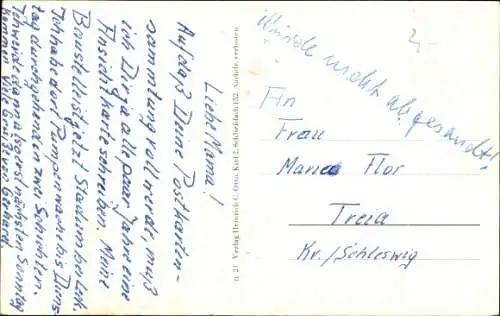 Liebe Mama!
Auf daß Deine Postkarten-
sammlung voll werde, muß
ich Dir ja alle paar Jahre eine
Ansichtskarte schreiben. Meine
Baustelle ist jetzt Stadum bei Leck.
Ich habe dort Pumpenwache bis Diens-
tag durchgehend zwei Schichten.
Ich werde dann aber erst nächsten Sonntag
kommen. Viele Grüße von Gerhard.
n. 21 Verlag Heinrich C. Otto, Kiel 2, Schließfach 152. Nachdr. verboten.
Wurde nicht abgesandt!
An
Frau
Maria Flor
Treia
Kr./Schleswig